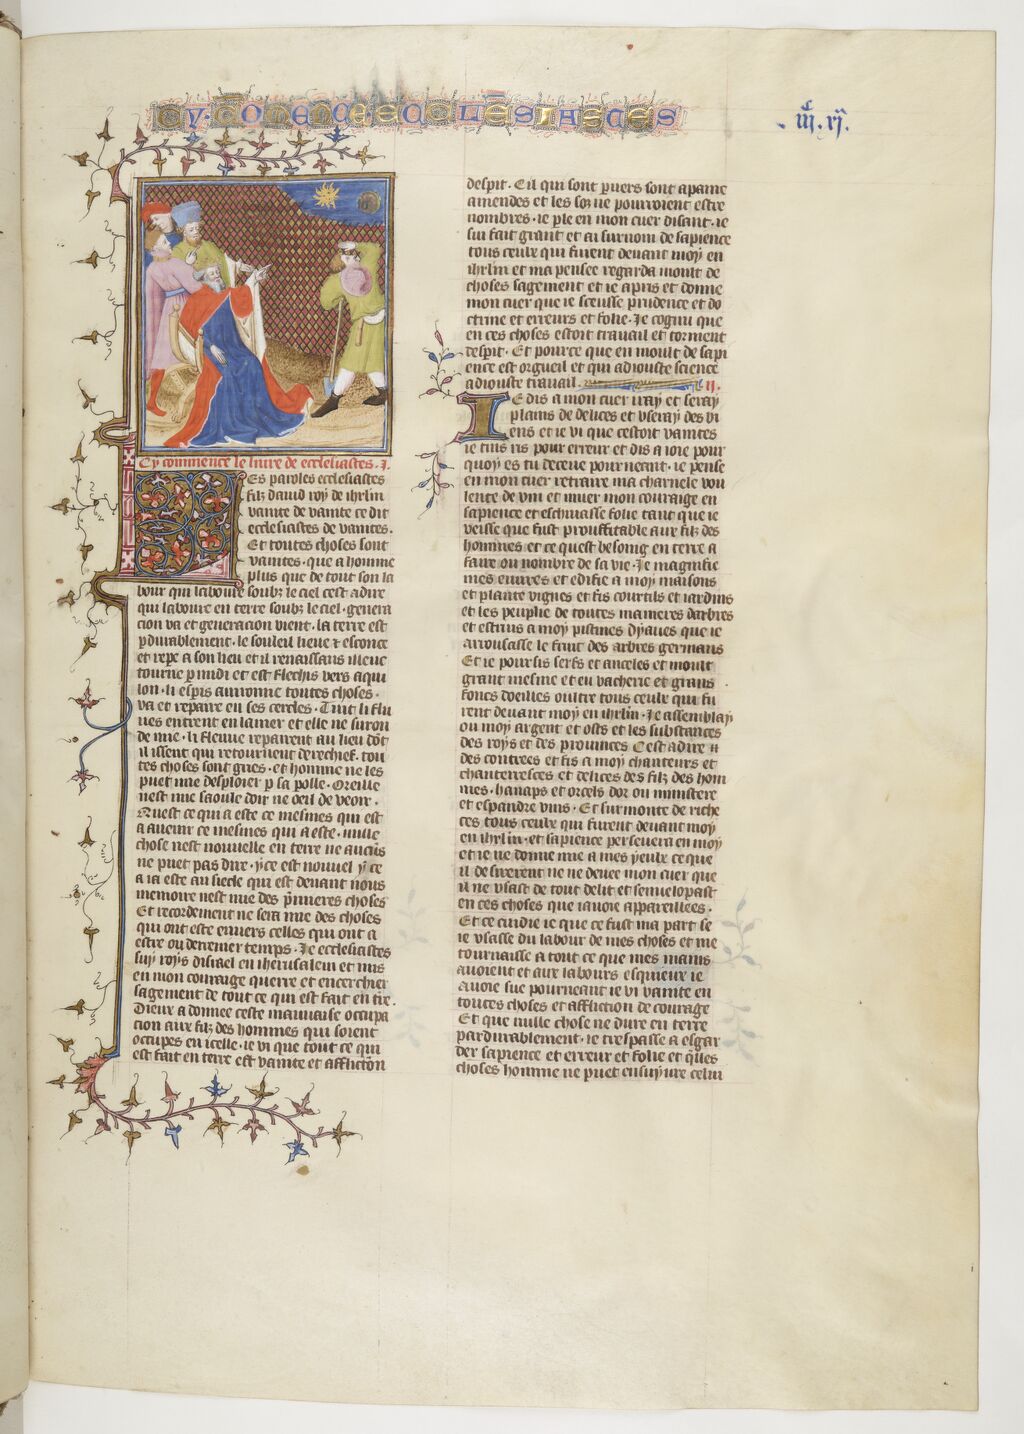 CY COMENCE ECCLESIASTES
.iiij. xj.
Cy commence le livre de ecclesiastes. I.
Les paroles ecclesiastes
filz david roy de ihrlm
vanite de vanite ce dit
ecclesiastes de vanites.
Et toutes choses sont
vanites. que a homme
plus que de tout son la
bour qui laboure soubz le ciel cest adire
qui laboure en terre soubz le ciel. genera
cion va et generacion vient. la terre est
pdurablement. le souleil lieve et esconce
et repe a son lieu et il renaissans illeuc
tourne p midi et est flechis vers aqui
lon. li espis avironne toutes choses.
va et repaire en ses cercles. Tuit li flu
ves entrent en la mer et elle ne suron
de mie. li fleuve repairent au lieu dot
il issent qui retournent derechief. tou
tes choses sont gries. et homme ne les
puet mie desploier p sa polle. Oreille
nest mie saoule doir ne oeil de veoir.
Quest ce qui a este ce mesmes qui est
a avenir ce mesmes qui a este. nulle
chose nest nouvelle en terre ne aucus
ne puet pas dire. yce est nouvel yce
a ia este au siecle qui est devant nous
memoire nest mie des pmieres choses
Et recordement ne sera mie des choses
qui ont este envers celles qui ont a
estre ou derrenier temps. Je ecclesiastes
suy roys disrael en iherusalem et mis
en mon couraige querre et encerchier
sagement de tout ce qui est fait en tre.
Dieux a donnee ceste mauvaise occupa
cion aux filz des hommes qui soient
occupes en icelle. ie vi que tout ce qui
est fait en terre est vanite et affliction
despit. Cil qui sont puers sont a paine
amendes et les soz ne pourroient estre
nombres. ie ple en mon cuer disant. ie
sui fait grant et ai surnom de sapience
tous ceulx qui furent devant moy en
ihrlm et ma pensee regarda moult de
choses sagement et ie apris et donne
mon cuer que ie sceusse prudence et do
ctrine et erreurs et folie. Je cognu que
en ces choses estoit travail et torment
despit. Et pource que en moult de sapi
ence est orgueil et qui adiouste science
adiouste travail. II.
Je dis a mon cuer iray et seray
plains de delices et useray des bi
ens et ie vi que cestoit vanites
ie tins ris pour erreur et dis a ioie pour
quoy es tu deceue pour nerant. ie pense
en mon cuer retraire ma charnele vou
lente de vin et muer mon couraige en
sapience et eschuasse folie tant que ie
veisse que fust prouffitable aux filz des
hommes et ce quest besoing en terre a
faire ou nombre de sa vie. Je magnifie
mes euvres et edifie a moy maisons
et plante vignes et fis courtils et iardins
et les peuplie de toutes manieres darbres
et estruis a moy piscines dyaues que ie
arrousasse le fruit des arbres germans
Et ie poursis serfs et anceles et moult
grant mesnie et eu vacherie et grans
foncs doeilles oultre tous ceulx qui fu
rent devant moy en ihrlm. Je assemblay
ou moy argent et osts et les substances
des roys et des provinces Cest adire
des contrees et fis a moy chanteurs et
chanterresces et delices des filz des hom
mes. hanaps et orcels dor ou ministere
et espandre vins. Et surmonte de riche
ces tous ceulx qui furent devant moy
en ihrlm. et sapience persevera en moy
et ie ne donne mie a mes yeulx ce que
il desirerent ne ne deuee mon cuer que
il ne usast de tout delit et senvelopast
en ces choses que iavoie appareillees.
Et ce cuidie ie que ce fust ma part se
ie usasse du labour de mes choses et me
tournaisse a tout ce que mes mains
avoient et aux labours esquieux ie
avoie sue pourneant ie vi vanite en
toutes choses et affliction de courage
Et que nulle chose ne dure en terre
pardurablement. ie trespasse a esgar
der sapience et erreur et folie et qles
choses homme ne puet ensuyvre celui